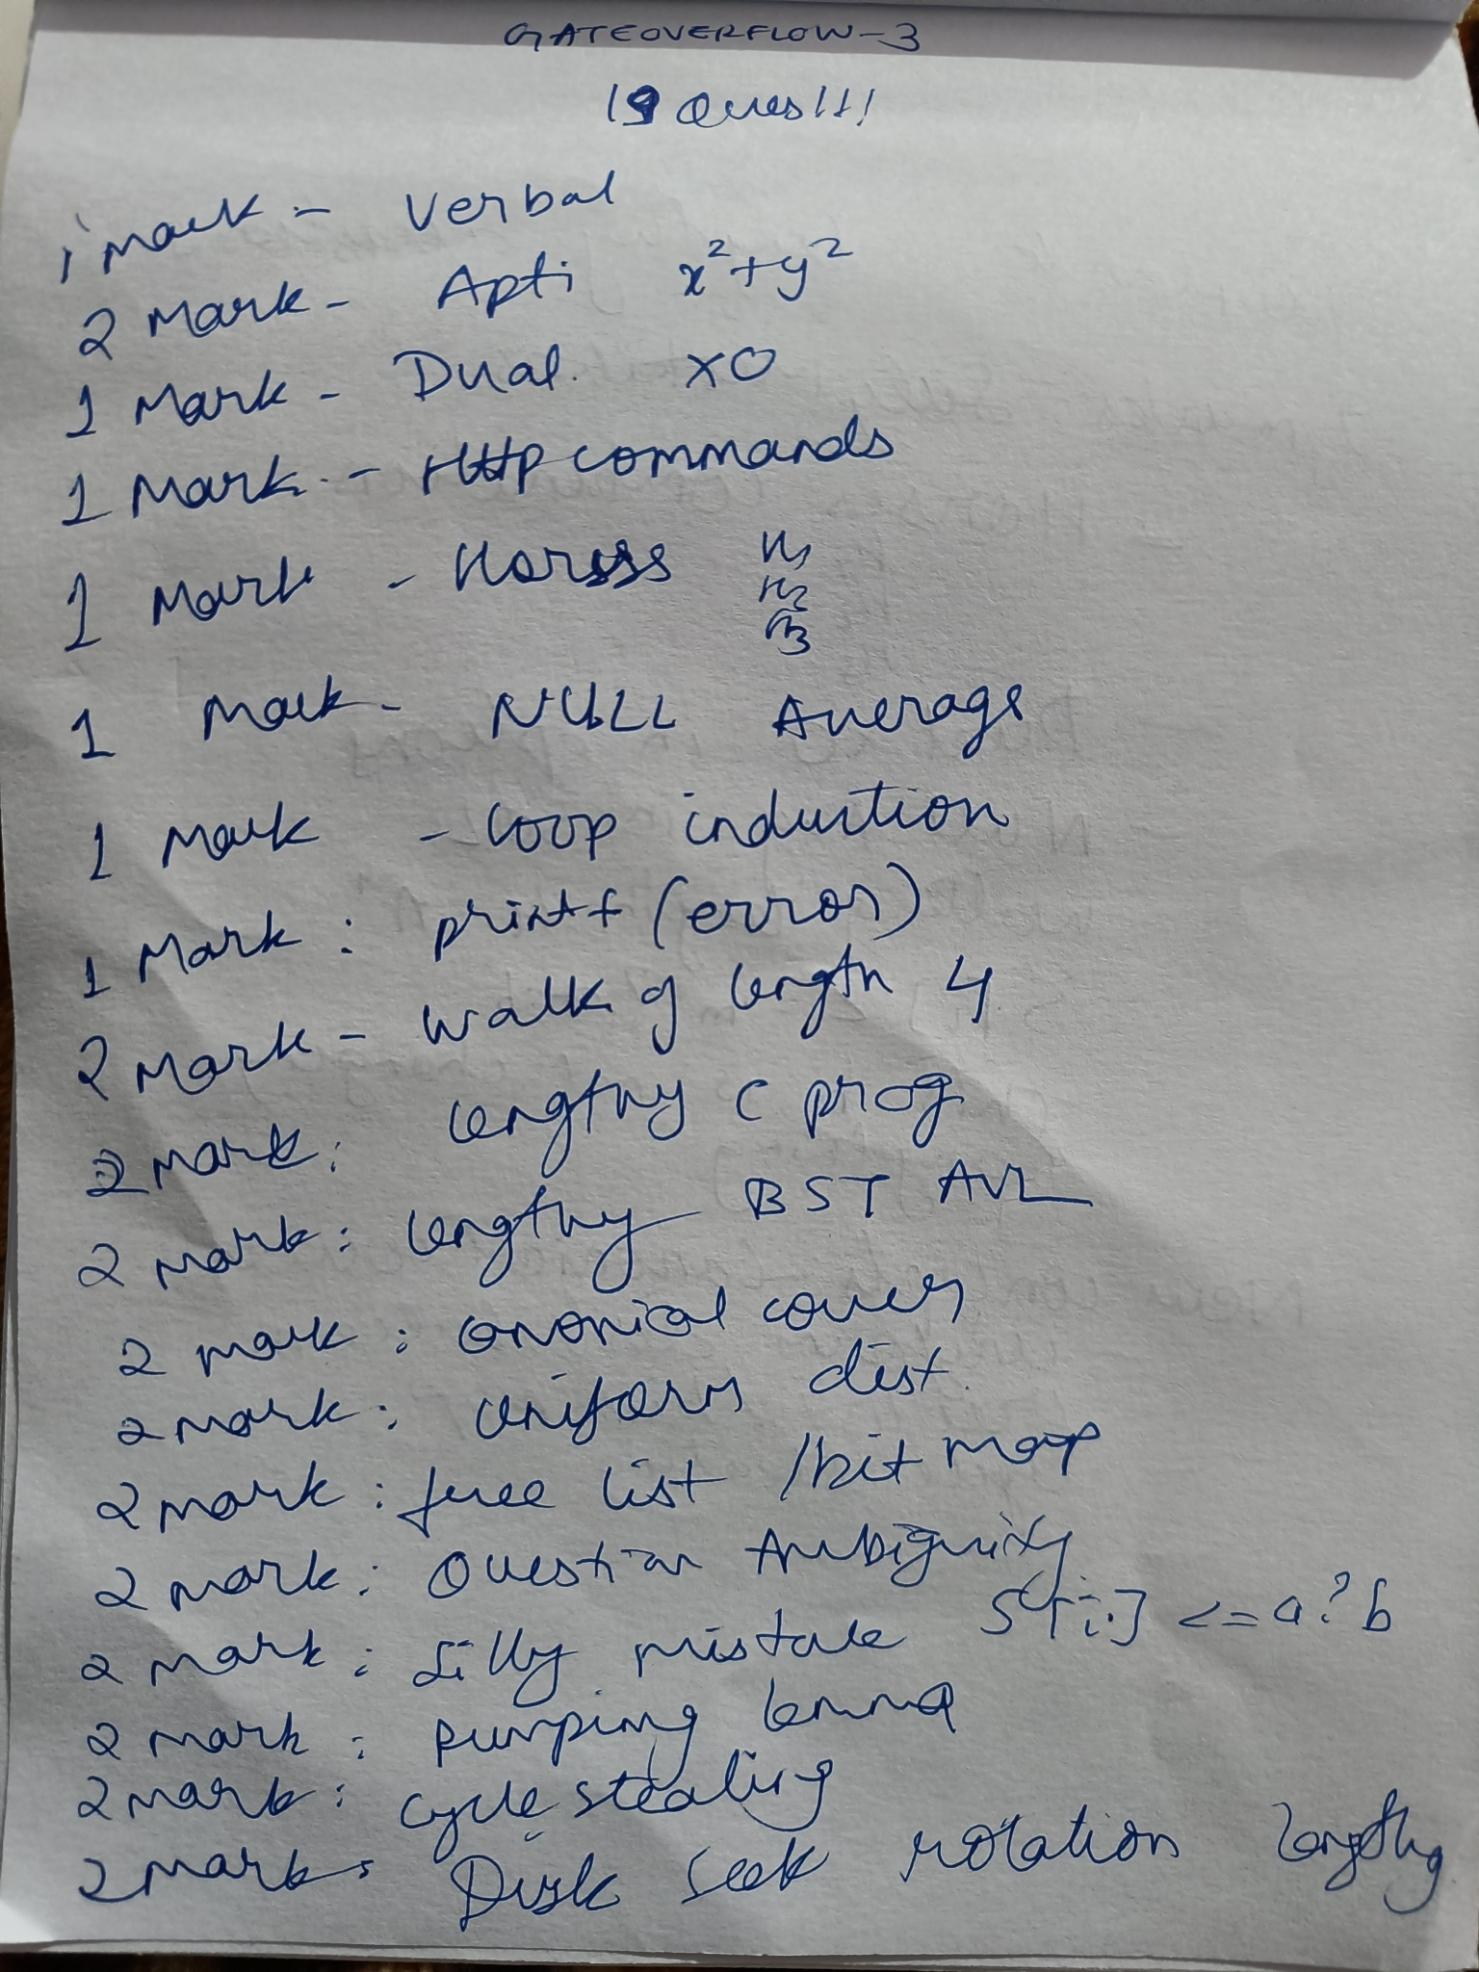 GATEOVERFLOW-3
19 Ques!!!
1 mark - Verbal
2 Mark - Apti x²+y²
1 Mark - Dual. XO
1 Mark - Http commands
1 Mark - Horsss H1
H2
H3
1 Mark - NULL Average
1 Mark - loop induction
1 Mark : printf (error)
2 Mark - walk of length 4
2 mark : lengthy C prog
2 mark : lengthy BST AVL
2 mark : canonical cover
2 mark : uniform dist.
2 mark : free list / bit map
2 mark : Question Ambiguity
2 mark : Silly mistake S[i] <= a ? b
2 mark : Pumping lemma
2 mark : cycle stealing
2 mark : Disk seek rotation lengthy